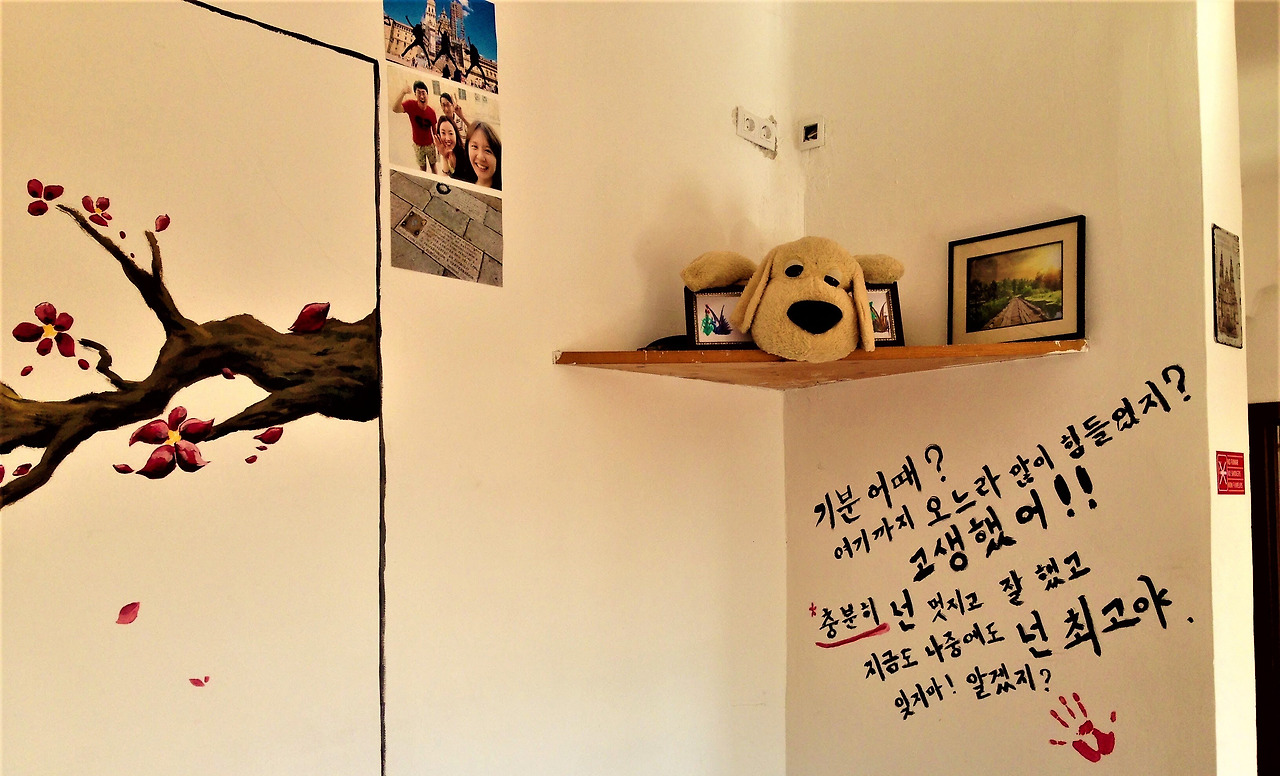 기분 어때?
여기까지 오느라 많이 힘들었지?
고생했어!!
*충분히 넌 멋지고 잘 했고
지금도 나중에도 넌 최고야.
잊지마! 알겠지?